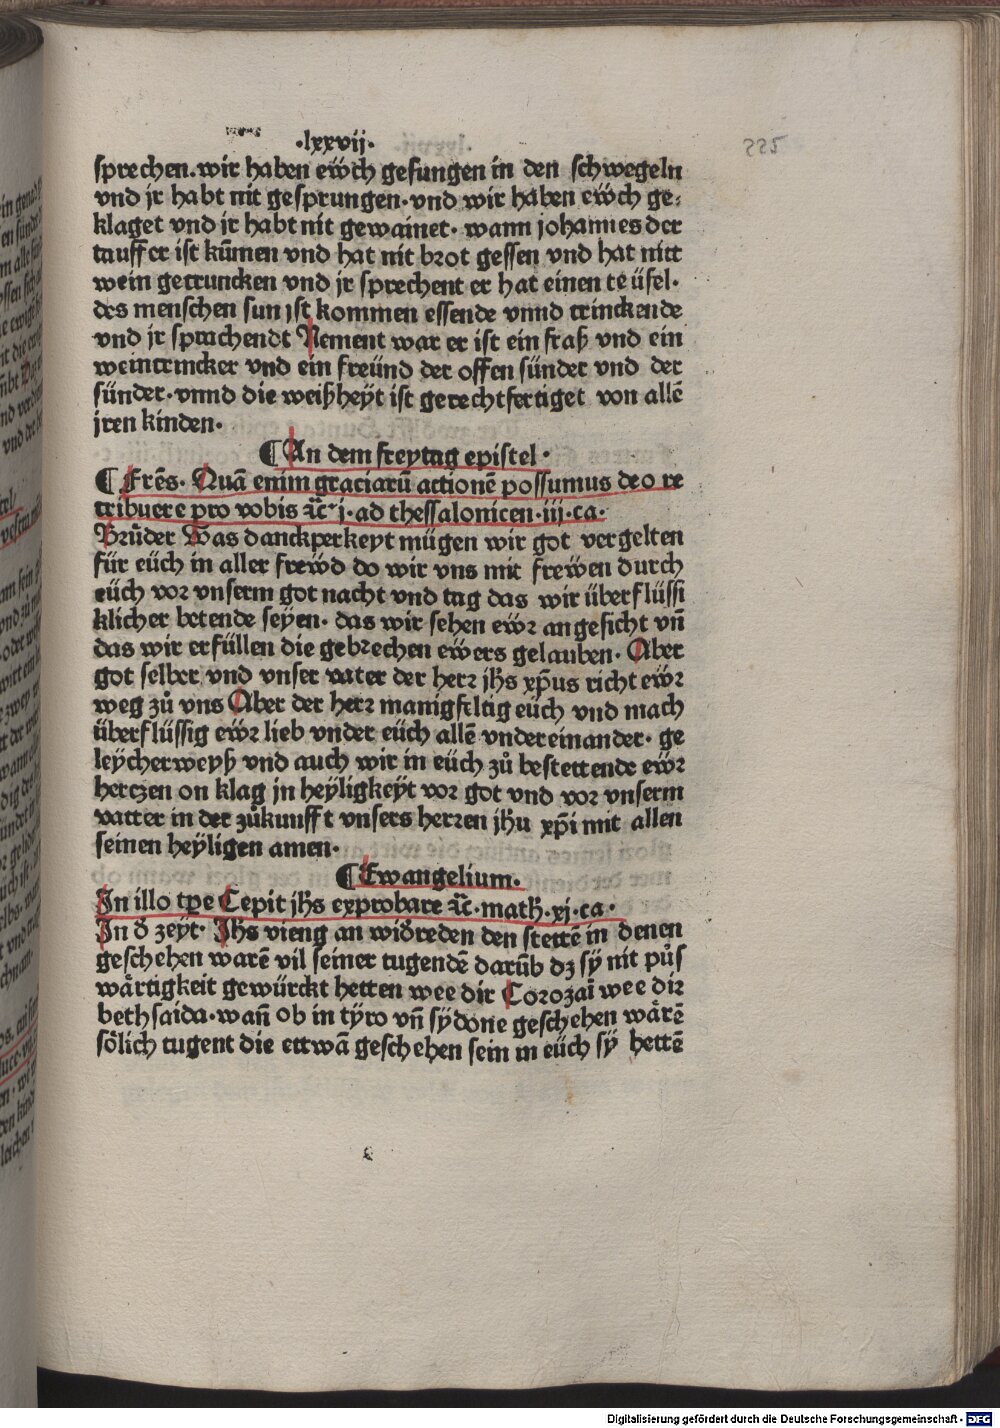 ·lxxvij·
552
sprechen.wir haben eẅch gesungen in den schwegeln
vnd jr habt nit gesprungen·vnd wir haben eẅch ge⸗
klaget vnd jr habt nit gewainet· wann johannes der
tauffer ist kūmen vnd hat nit brot gessen vnd hat nitt
wein getruncken vnd jr sprechent er hat einen teüfel·
des menschen sun jst kommen essende vnnd trinckende
vnd jr sprachendt Nement war er ist ein fraß vnd ein
weintrincker vnd ein freünd der offen sünder vnd der
sünder· vnnd die weißheÿt ist gerechtfertiget von allē
jren kinden·
¶ An dem freytag epistel·
¶ Frēs· Quā enim graciarū actionē possumus deo re
tribuere pro vobis ⁊c̄ j·ad thessalonicen·iij·ca·
Brůder Was danckperkeyt mügen wir got vergelten
für eüch in aller frewd do wir vns mit frewen durch
eüch vor vnserm got nacht vnd tag das wir überflüssi
klicher betende seyen· das wir sehen eẅr angesicht vn̄
das wir erfüllen die gebrechen eẅers gelauben· Aber
got selber vnd vnser vater der herr jh̄s xp̄us richt eẅr
weg zů vns Aber der herr manigfeltig eüch vnd mach
überflüssig eẅr lieb vnder eüch allē vndereinander· ge
leÿcherweyß vnd auch wir in eüch zů bestettende eẅr
hertzen on klag jn heÿligkeÿt vor got vnd vor vnserm
vatter in der zůkunfft vnsers herren jh̄u xp̄i mit allen
seinen heÿligen amen·
¶ Ewangelium·
In illo tp̄e Cepit jh̄s exprobare ⁊c̄·math̄·xj·ca·
In d̄ zeÿt· Jh̄s vieng an wid̄reden den stettē in denen
geschehen warē vil seiner tugendē darūb dꝫ sÿ nit půs
wärtigkeit gewürckt hetten wee dir Corozaī wee dir
bethsaida·wan̄ ob in tÿro vn̄ sÿdone geschehen wärē
sölich tugent die ettwā geschehen sein in eüch sÿ hettē
Digitalisierung gefördert durch die Deutsche Forschungsgemeinschaft · DFG